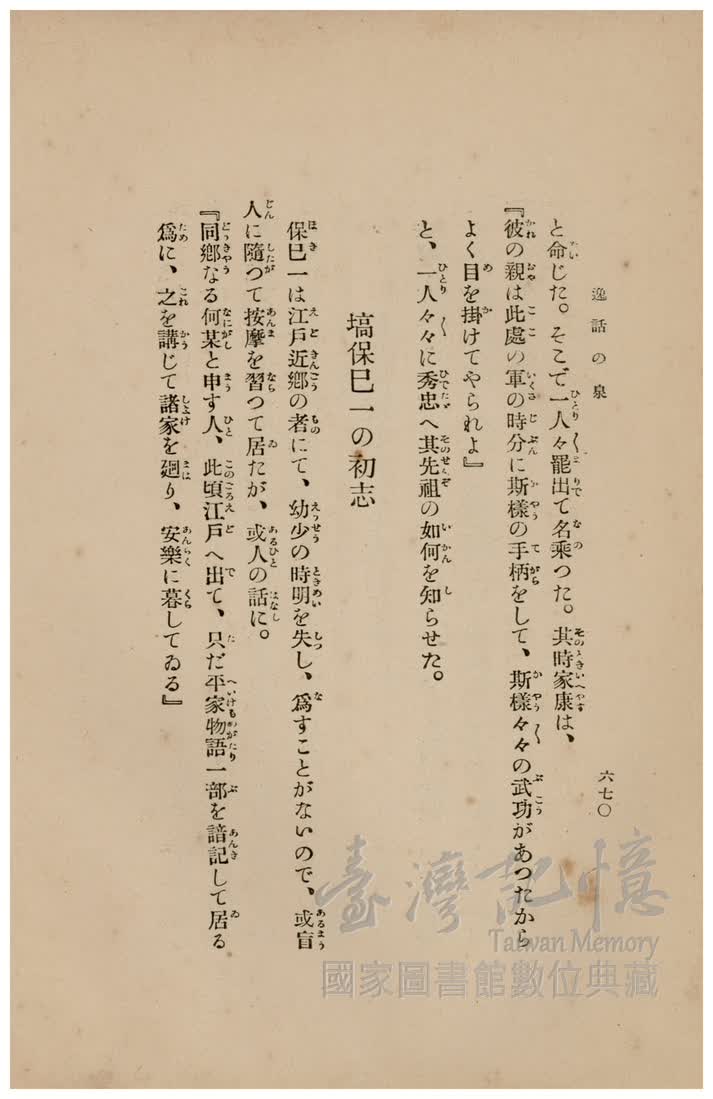 逸話の泉
六七〇
と命じた。そこで一人々々罷出て名乘つた。其時家康は、
『彼の親は此處の軍の時分に斯樣の手柄をして、斯樣々々の武功があつたから
よく目を掛けてやられよ』
と、一人々々に秀忠へ其先祖の如何を知らせた。
塙保巳一の初志
保巳一は江戸近鄕の者にて、幼少の時明を失し、爲すことがないので、或盲
人に隨つて按摩を習つて居たが、或人の話に。
『同鄕なる何某と申す人、此頃江戸へ出て、只だ平家物語一部を諳記して居る
爲に、之を講じて諸家を廻り、安樂に暮してゐる』
臺灣記憶
Taiwan Memory
國家圖書館數位典藏